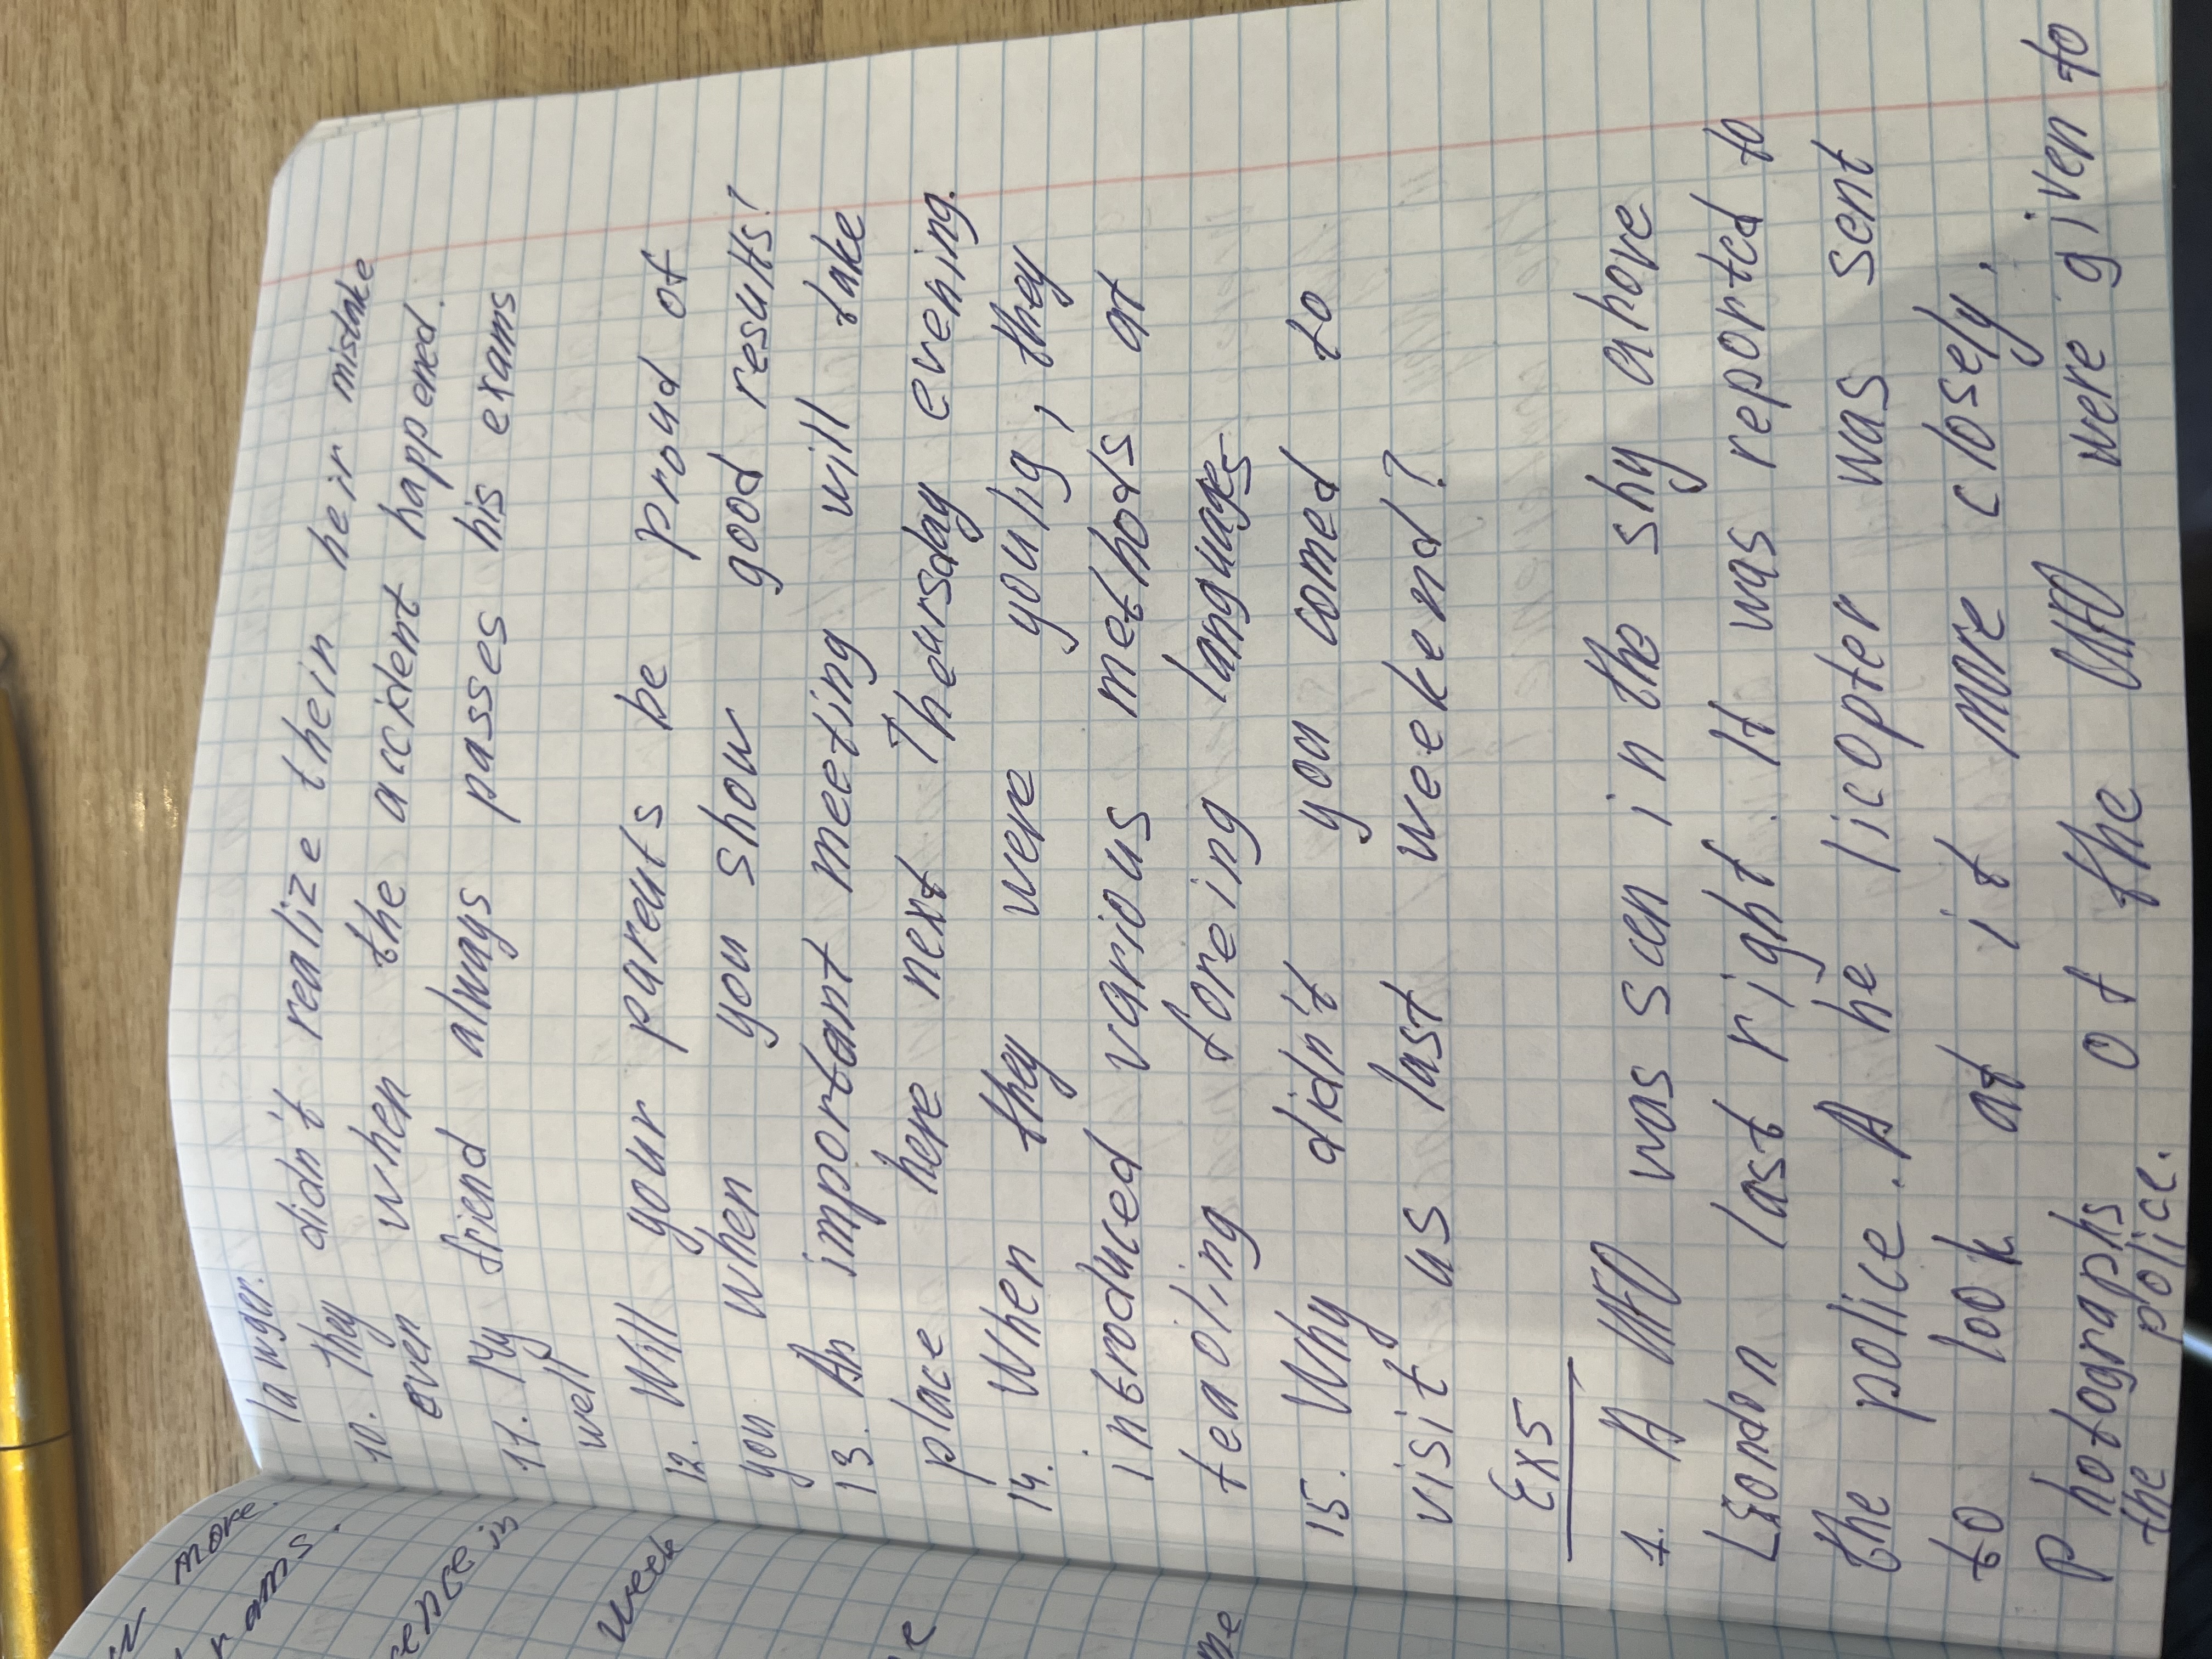 lawyer.
10. They didn't realize thein heir mistake
even when the accident happened.
11. My friend always passes his exams
well
12. Will your parents be proud of
you when you show good results?
13. An important meeting will take
place here next Theursday evening.
14. When they were young, they
introduced various methods at
teaoling foreing languages
15. Why didn't you comed to
visit us last weekend?
Ex5
1. A UFO was seen in the shy above
London last right. It was reported to
the police. A he licopter was sent
to look at it more closely.
Photographs of the UFO were given to
the police.
more
rams.
ence is
week